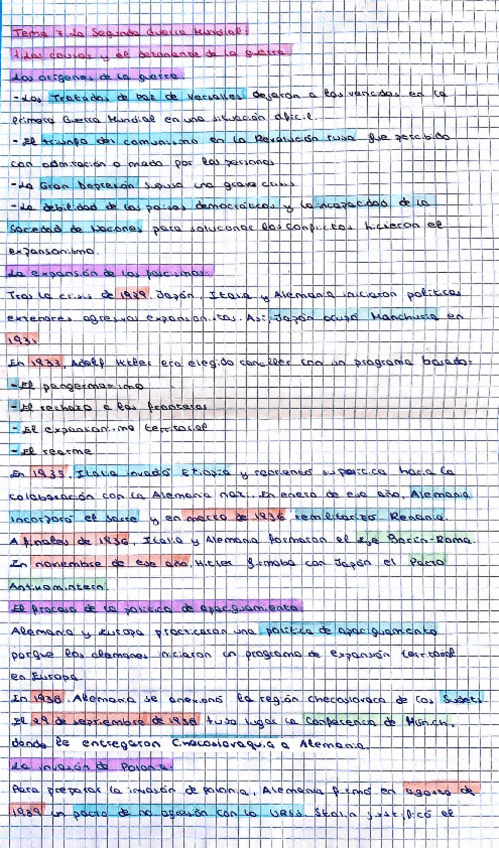 Tema 7. La Segunda Guerra Mundial:
1. Las causas y el detonante de la guerra:
Los orígenes de la guerra
- Los Tratados de Paz de Versalles dejaron a los vencidos en la
Primera Guerra Mundial en una situación difícil.
- El triunfo del comunismo en la Revolución rusa fue percibido
con admiración o miedo por las personas
- La Gran Depresión supuso una grave crisis
- La debilidad de los países democráticos y la incapacidad de la
Sociedad de Naciones para solucionar los conflictos hicieron el
expansionismo.
La expansión de las potencias:
Tras la crisis de 1929 Japón, Italia y Alemania iniciaron políticas
exteriores agresivas expansionistas. Así, Japón ocupó Manchuria en
1931
En 1933, Adolf Hitler era elegido canciller con un programa basado:
- El pangermanismo
- El rechazo a las fronteras
- El expansionismo territorial
- El rearme
En 1935, Italia invadió Etiopía y reorientó su política hacia la
colaboración con la Alemania nazi. En enero de ese año, Alemania
incorporó el Sarre y en marzo de 1936 remilitarizó Renania.
A finales de 1936, Italia y Alemania formaron el Eje Berlín-Roma.
En noviembre de ese año, Hitler firmaba con Japón el Pacto
Antikomintern.
El fracaso de la política de apaciguamiento
Alemania y Europa practicaron una política de apaciguamiento
porque los alemanes iniciaron un programa de expansión territorial
en Europa.
En 1938, Alemania se anexionó la región checoslovaca de los Sudetes.
El 29 de septiembre de 1938 tuvo lugar la Conferencia de Múnich,
donde le entregaron Checoslovaquia a Alemania.
La invasión de Polonia:
Para preparar la invasión de Polonia, Alemania firmó en agosto de
1939 un pacto de no agresión con la URSS. Stalin justificó el